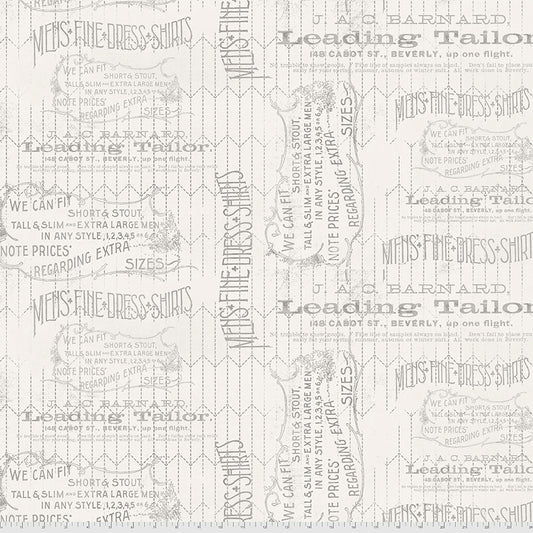 MEN'S FINE DRESS SHIRTS
WE CAN FIT
SHORT & STOUT,
TALL & SLIM AND EXTRA LARGE MEN
IN ANY STYLE, 1,2,3,4,5 AND 6
NOTE PRICES'
REGARDING EXTRA
SIZES
J. A. C. BARNARD,
Leading Tailor.
148 CABOT ST., BEVERLY, up one flight.
WE CAN FIT
SHORT & STOUT,
TALL & SLIM AND EXTRA LARGE MEN
IN ANY STYLE, 1,2,3,4,5 AND 6
NOTE PRICES'
REGARDING EXTRA
SIZES
MEN'S FINE DRESS SHIRTS
WE CAN FIT
SHORT & STOUT,
TALL & SLIM AND EXTRA LARGE MEN
IN ANY STYLE, 1,2,3,4,5 AND 6
NOTE PRICES'
REGARDING EXTRA
SIZES
J. A. C. BARNARD,
Leading Tailor.
148 CABOT ST., BEVERLY, up one flight.
WE CAN FIT
SHORT & STOUT,
TALL & SLIM AND EXTRA LARGE MEN
IN ANY STYLE, 1,2,3,4,5 AND 6
NOTE PRICES'
MEN'S FINE DRESS SHIRTS
MEN'S FINE DRESS SHIRTS
MEN'S FINE DRESS SHIRTS
J. A. C. BARNARD,
Leading Tailor
148 CABOT ST., BEVERLY, up one flight.
WE CAN FIT
SHORT & STOUT,
TALL & SLIM AND EXTRA LARGE MEN
IN ANY STYLE, 1,2,3,4,5 AND 6
NOTE PRICES'
REGARDING EXTRA
SIZES
J. A. C. BARNARD,
Leading Tailor
148 CABOT ST., BEVERLY, up one flight.
WE CAN FIT
SHORT & STOUT,
TALL & SLIM AND EXTRA LARGE MEN
IN ANY STYLE, 1,2,3,4,5 AND 6
NOTE PRICES'
REGARDING EXTRA
SIZES
MEN'S FINE DRESS SHIRTS
WE CAN FIT
SHORT & STOUT,
TALL & SLIM AND EXTRA LARGE MEN
IN ANY STYLE, 1,2,3,4,5 AND 6
NOTE PRICES'
REGARDING EXTRA
SIZES
J. A. C. BARNARD,
Leading Tailor
148 CABOT ST., BEVERLY, up one flight.
MEN'S FINE DRESS SHIRTS
MEN'S FINE DRESS SHIRTS
WE CAN FIT
SHORT & STOUT,
TALL & SLIM AND EXTRA LARGE MEN
IN ANY STYLE, 1,2,3,4,5 AND 6
NOTE PRICES'
REGARDING EXTRA
SIZES
J. A. C. BARNARD,
Leading Tailor
148 CABOT ST., BEVERLY, up one flight.